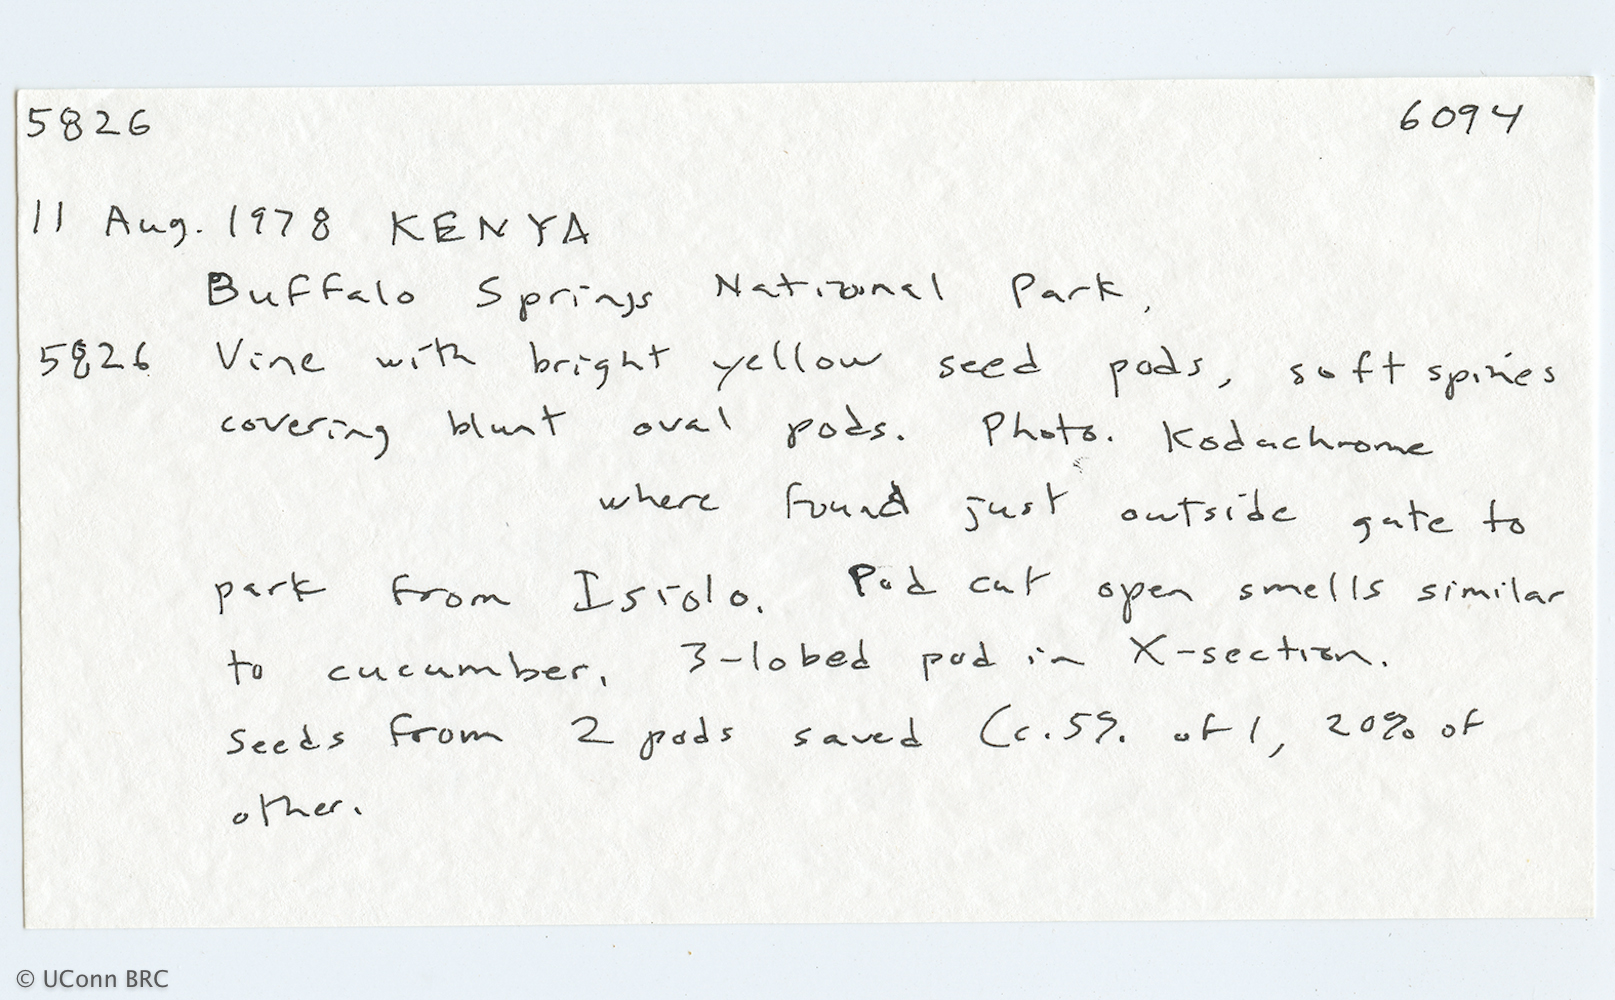 5826 6094
11 Aug. 1978 KENYA
Buffalo Springs National Park,
5826 Vine with bright yellow seed pods, soft spines
covering blunt oval pods. Photo. Kodachrome
where found just outside gate to
park from Isiolo. Pod cut open smells similar
to cucumber. 3-lobed pod in X-section.
Seeds from 2 pods saved (c.5% of 1, 20% of
other.
© UConn BRC